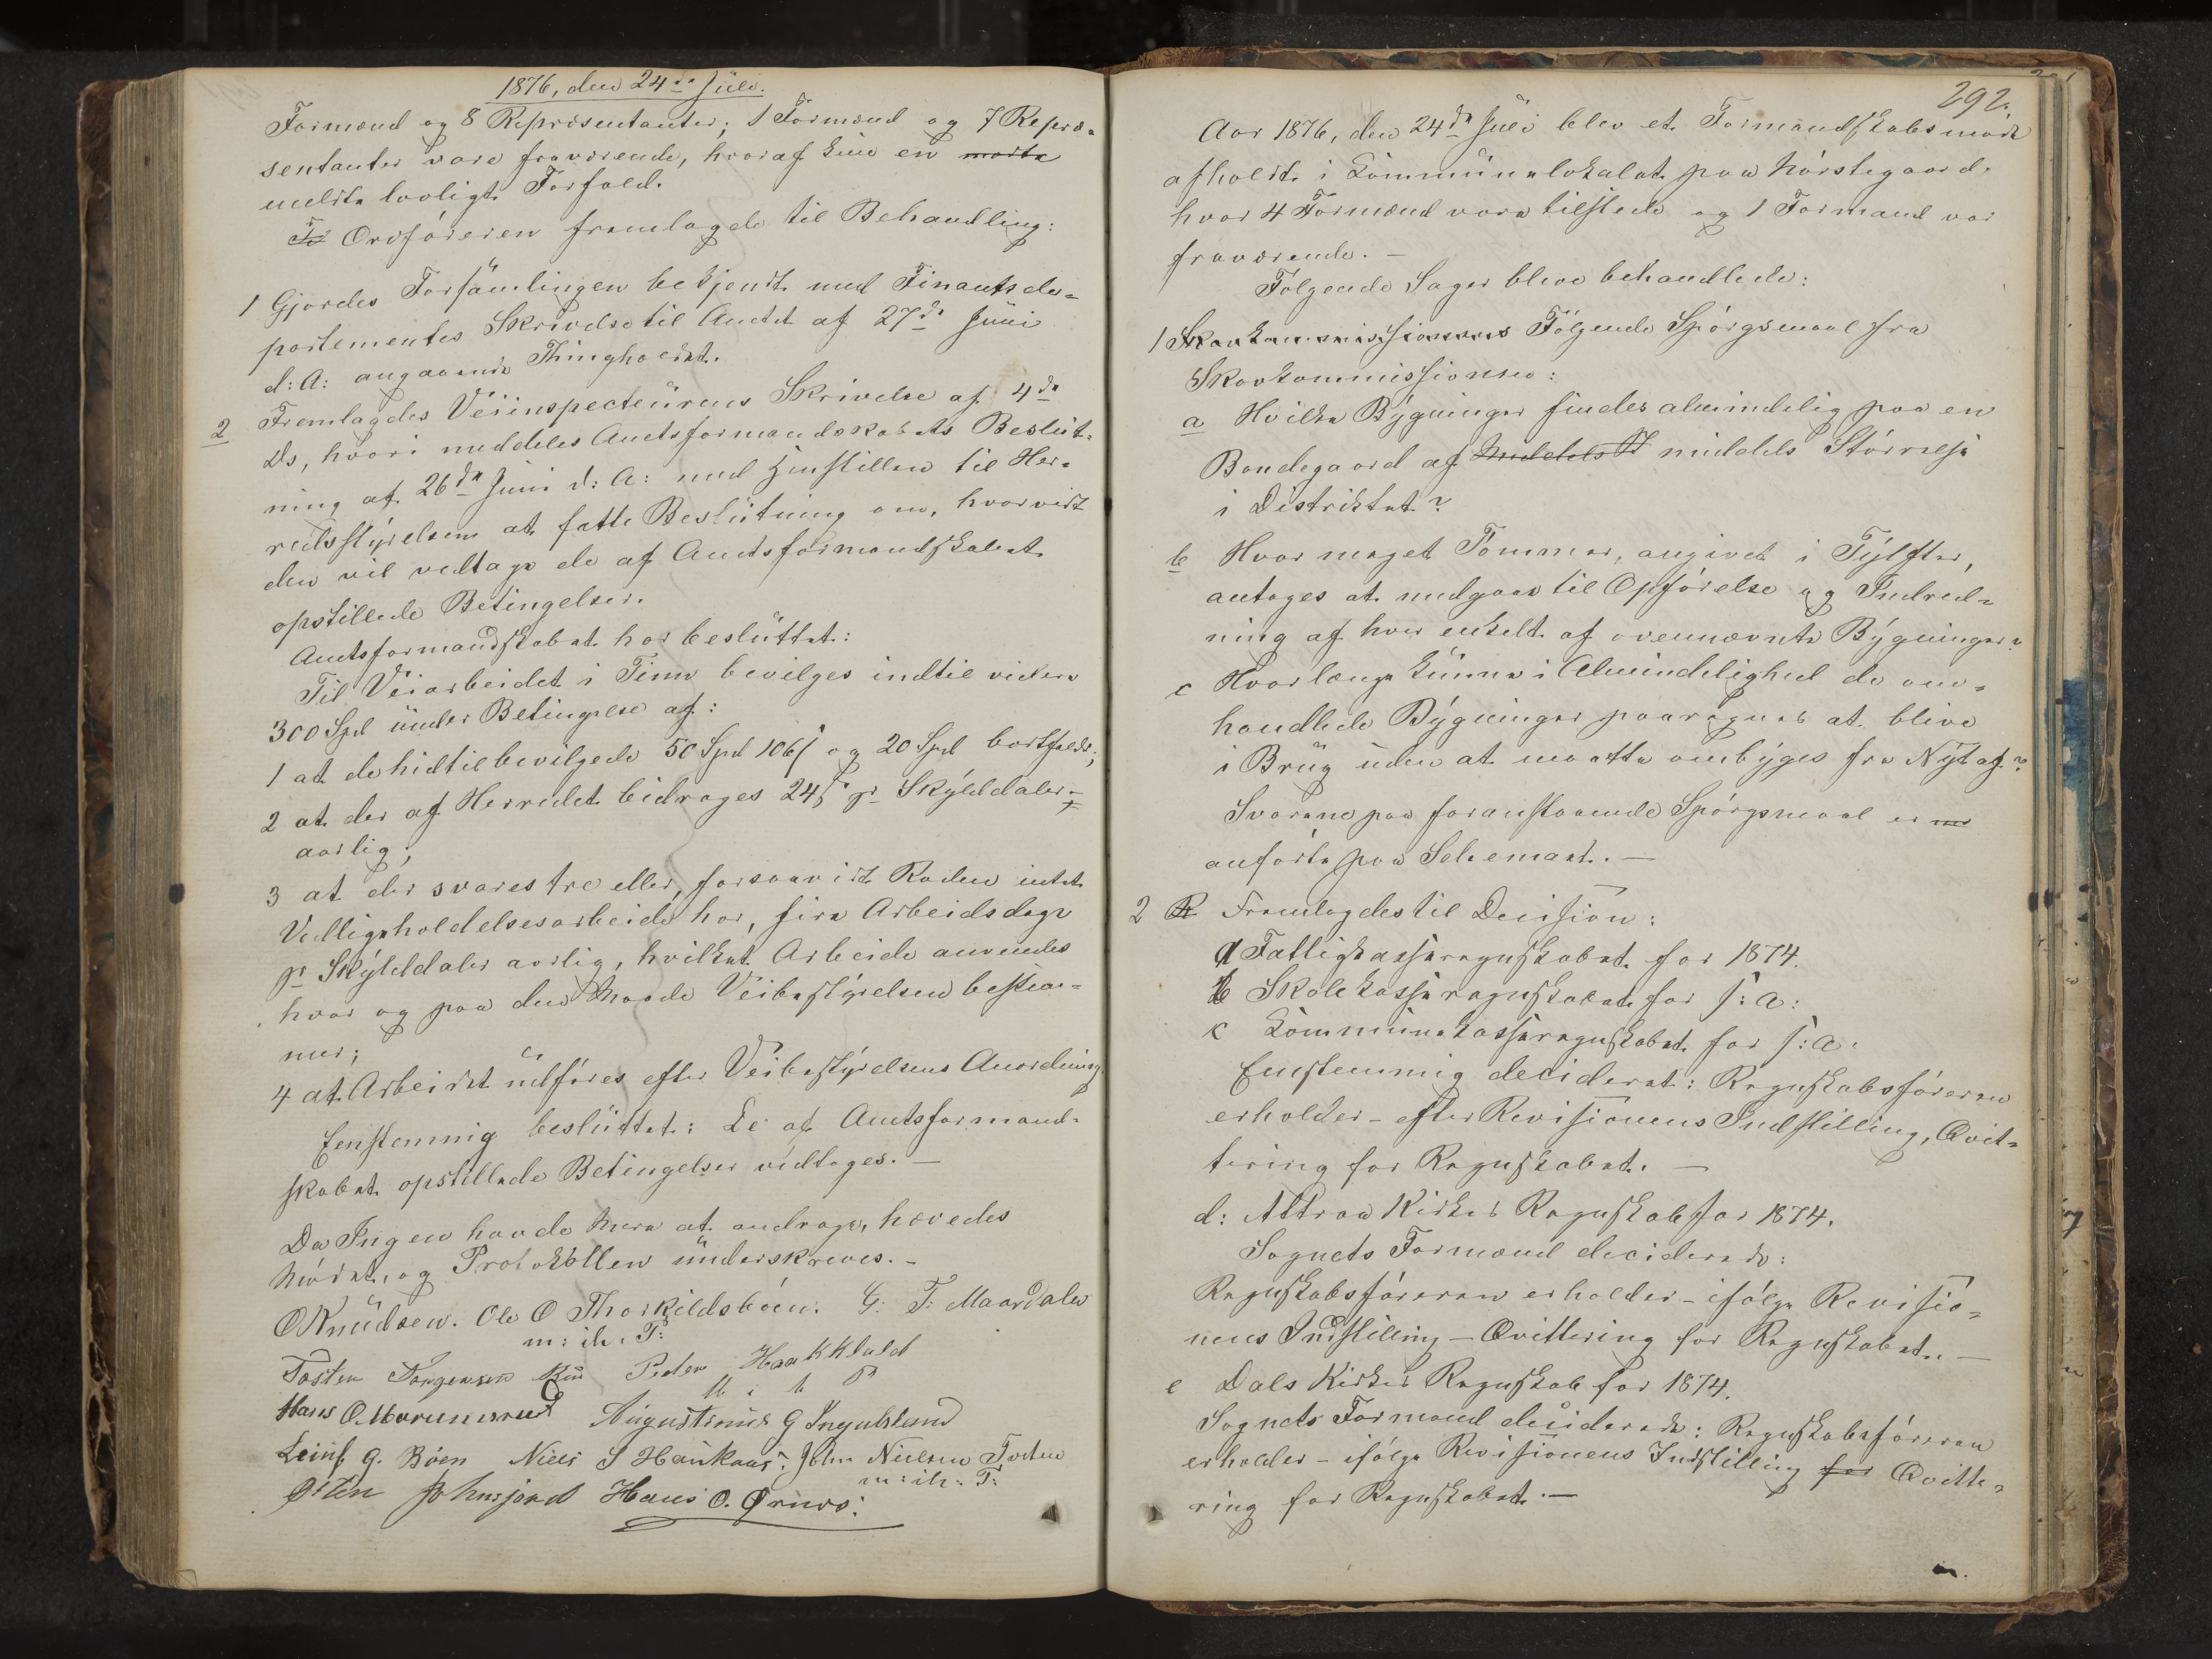 1876, den 24de Juli.
Formænd og 8 Repræsentanter; 1 Formænd og 7 Repræ=
sentanter vare fraværende, hvoraf kun en
meldte lovligt Forfald.
Ordføreren fremlagde til Behandling:
1 Gjordes Forsamlingen bekjendt med Finantsde=
partementets Skrivelse til Amtet af 27de Juni
d: A: angaaende Thingholdet.
2 Fremlagdes Veiinspecteurens Skrivelse af 4de
ds, hvori meddeles Amtsformandskabets Beslut=
ning af 26de Juni d: A: med Henstillen til Her=
redsstyrelsen at fatte Beslutning om, hvorvidt
den vil vedtage de af Amtsformandskabet
opstillede Betingelser.
Amtsformandskabet har besluttet:
Til Veiarbeidet i Tinn bevilges indtil videre
300 Spd under Betingelse af:
1 at de hidtil bevilgede 50 Spd 106 ß og 20 Spd bortfalde;
2 at der af Herredet bidrages 24 ß pr Skylddaler
aarlig;
3 at der svares tre eller, forsaavidt Roden intet
Vedligeholdelsesarbeide har, fire Arbeidsdage
pr Skylddaler aarlig, hvilket Arbeide anvendes
hvor og paa den Maade Veibestyrelsen bestem=
mer;
4 at Arbeidet udføres efter Veibestyrelsens Anordning
Eenstemmig besluttet: De af Amtsformand=
skabet opstillede Betingelser vedtages. —
Da Ingen havde mere at andrage, hævedes
Mødet, og Protokollen underskreves. —
O Knudsen. Ole O Thorkildsbøen. G: T: Maardalen
m: ih: P:
Tosten Torgersen Peder Haakklulet
M i h P
Hans O. Marumsrud Augustinus G Ingulsland
Leinf G. Bøen Niels S Haukaas John Nielsen Torten
m: ih: P:
Østen Johnsjord Hans O. Ørnes.
292.
Aar 1876, den 24de Juli blev et Formandskabsmøde
afholdt i Kommunelokalet paa Hørstegaard.
hvor 4 Formænd vare tilstede og 1 Formand var
fraværende. —
Følgende Sager bleve behandlede:
1 Skovkommissionens Følgende Spørgsmaal fra
Skovkommissionen:
a Hvilke Bygninger findes almindelig paa en
Bondegaard af Middels St middels Størrelse
i Distriktet?
b Hvor meget Tømmer, angivet i Tylfter,
antages at medgaa til Opførelse og Indred=
ning af hver enkelt af ovennævnte Bygninger?
c Hvorlænge kunne i Almindelighed de om=
handlede Bygninger paaregnes at blive
i Brug uden at maatte ombyges fra Nyt af?
Svarene paa foranstaaende Spørgsmaal er
anførte paa Schemaet. —
2 Fremlagdes til Decision:
a Fattigkasseregnskabet for 1874.
b Skolekasseregnskabet for s: A:
c Kommunekasseregnskabet for s: A:
Eenstemmig decideret: Regnskabsføreren
erholder – efter Revisionens Indstilling, Qvit=
tering for Regnskabet. —
d: Attraa Kirkes Regnskab for 1874.
Sognets Formænd deciderede:
Regnskabsføreren erholder – ifølge Revisio=
nens Indstilling – Qvittering for Regnskabet. —
e Dals Kirkes Regnskab for 1874.
Sognets Formænd deciderede: Regnskabsføreren
erholder – ifølge Revisionens Indstilling for Qvitte=
ring for Regnskabet. —